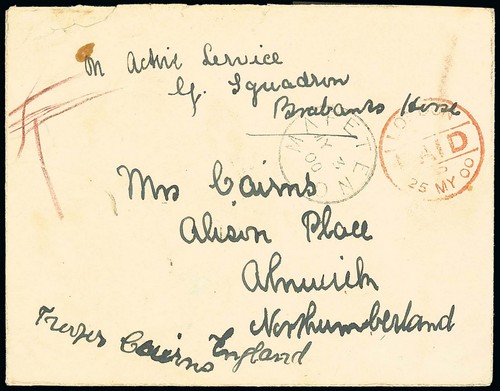 On Active Service
G. Squadron
Brabants Horse
MAFETENG
MY 3
00
LONDON
PAID
25 MY 00
Mrs Cairns
Alison Place
Alnwick
Northumberland
England
Trooper Cairns